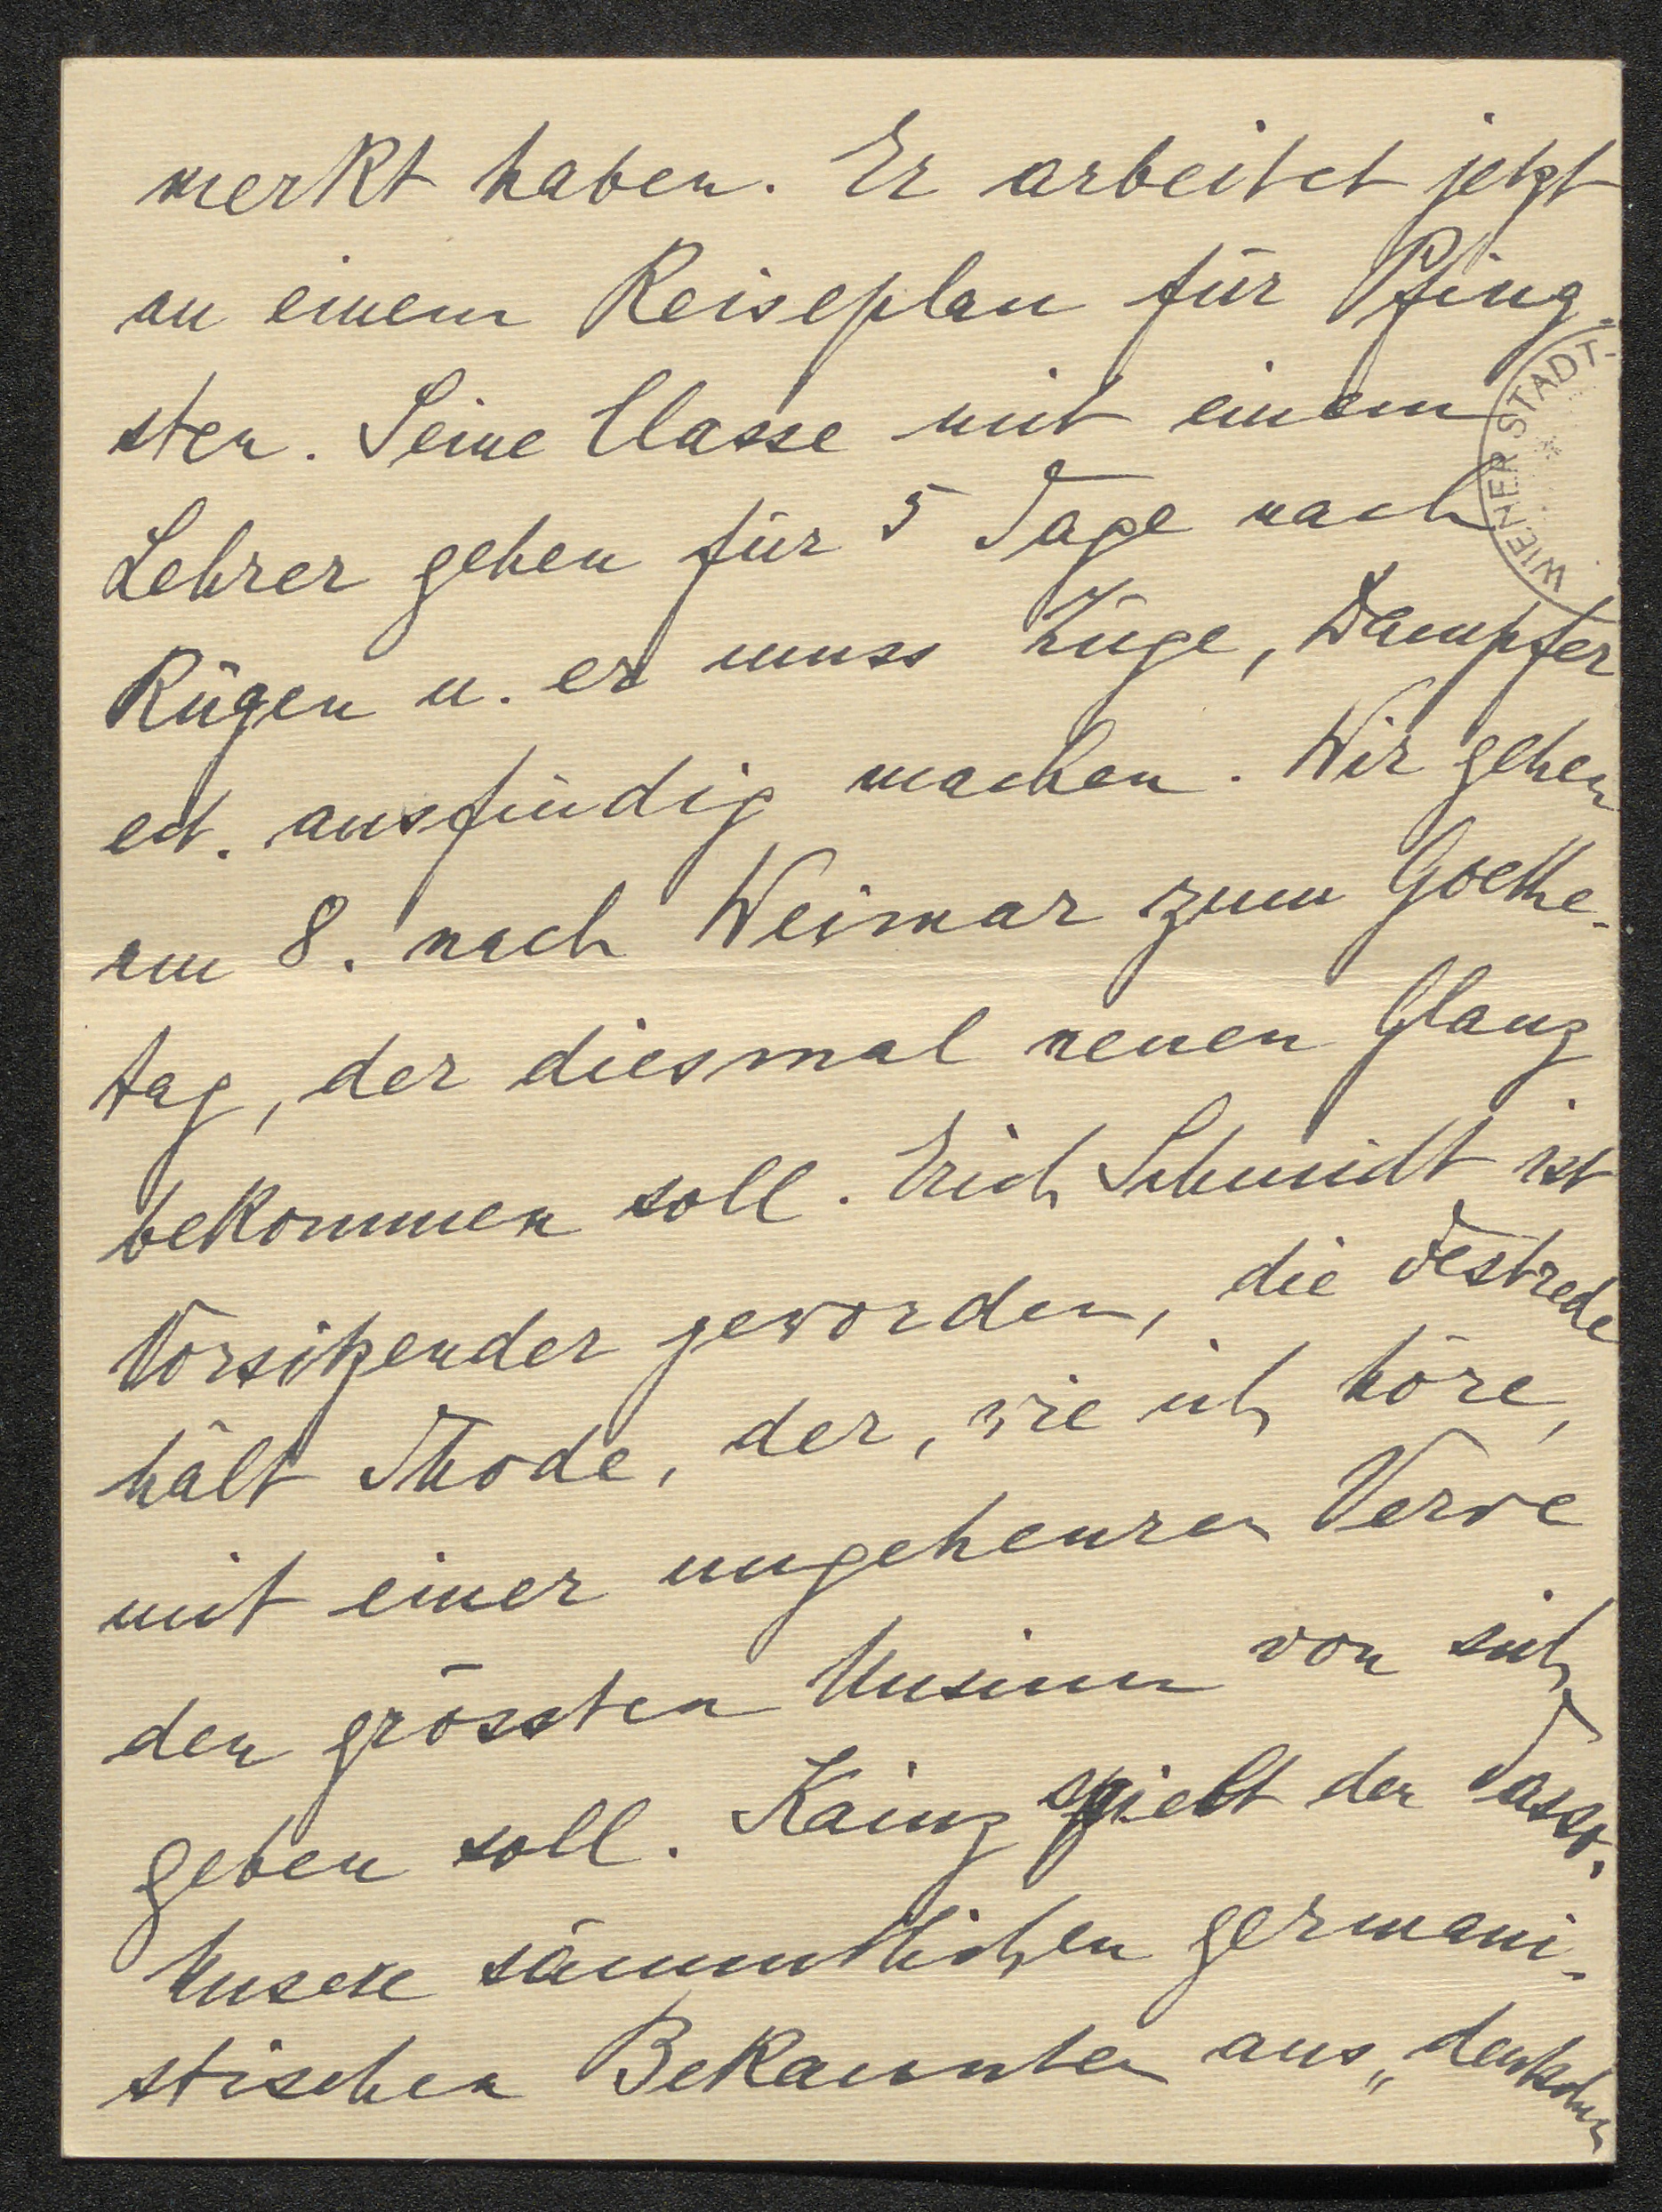 merkt haben. Er arbeitet jetzt
an einem Reiseplan für Pfing-
sten. Seine Classe mit einem
Lehrer gehen für 5 Tage nach
Rügen u. er muss Züge, Dampfer
ect. ausfindig machen. Wir gehen
am 8. nach Weimar zum Goethe-
tag, der diesmal neuen Glanz
bekommen soll. Erich Schmidt ist
Vorsitzender geworden, die Festrede
hält Thode, der, wie ich höre,
mit einer ungeheuren Verve
den grössten Unsinn von sich
geben soll. Kainz spielt den Tasso.
Unsere sämmtlichen germani-
stischen Bekannten aus „deutschen
WIENER STADT-